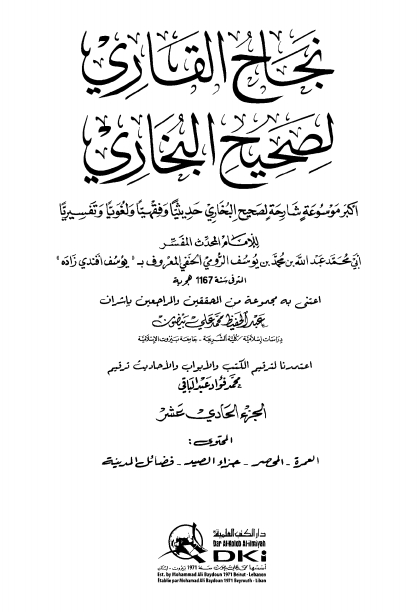 نجاح القاري
لصحيح البخاري
أكبر موسوعة شارحة لصحيح البخاري حديثيًّا وفقهيًّا ولغويًّا وتفسيريًّا
للإمام المحدث المفسّر
أبي محمد عبد الله بن محمد بن يوسف الرُّومي الحنفي المعروف بـ " يوسف أفندي زاده "
المتوفى سنة 1167 هجرية
اعتنى به مجموعة من المحققين والمراجعين بإشراف
عبد الحفيظ محمد علي بيضون
دراسات إسلامية - كلية الشريعة - جامعة بيروت الإسلامية
اعتمدنا لترقيم الكتب والأبواب والأحاديث ترقيم
محمد فؤاد عبد الباقي
الجزء الحادي عشر
المحتوى:
العمرة - المحصر - جزاء الصيد - فضائل المدينة
دار الكتب العلمية
Dar Al-Kotob Al-ilmiyah
DKi
أسسها محمد علي بيضون سنة 1971 بيروت - لبنان
Est. by Mohammad Ali Baydoun 1971 Beirut - Lebanon
Établie par Mohamad Ali Baydoun 1971 Beyrouth - Liban